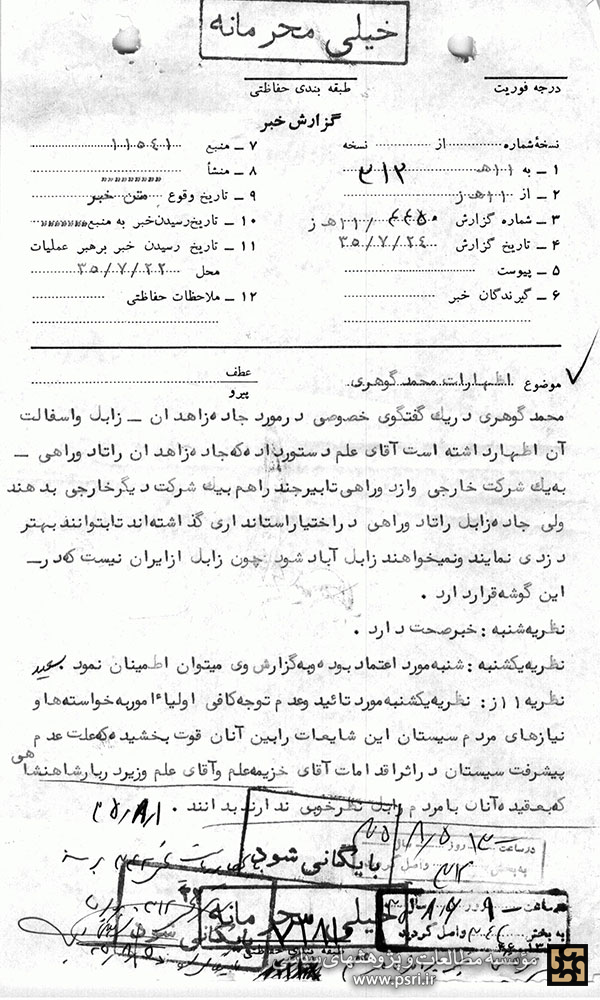 خیلی محرمانه
درجه فوریت
طبقه بندی حفاظتی
گزارش خبر
نسخه شماره از نسخه
۱ ـ به ۱۱هـ ۳۱۲
۲ ـ از ۱۱هـ ز
۳ ـ شماره گزارش ۱۱هـ ز
۴ ـ تاریخ گزارش ۳۵/۷/۲۴
۵ ـ پیوست
۶ ـ گیرندگان خبر
۷ ـ منبع ۱۱۵۴۱
۸ ـ منشأ
۹ ـ تاریخ وقوع متن خبر
۱۰ ـ تاریخ رسیدن خبر به منبع
۱۱ ـ تاریخ رسیدن خبر برهبر عملیات
محل ۳۵/۷/۲۲
۱۲ ـ ملاحظات حفاظتی
موضوع اظهارات محمد گوهری
عطف
پیرو
محمد گوهری در یک گفتگوی خصوصی در مورد جاده زاهدان ـ زابل واسفالت
آن اظهار داشته است آقای علم دستور داده که جاده زاهدان را تا دوراهی ـ
به یک شرکت خارجی و از دوراهی تا بیرجند را هم بیک شرکت دیگر خارجی بدهند
ولی جاده زابل را تا دوراهی در اختیار استانداری گذاشته اند تا بتوانند بهتر
دزدی نمایند و نمیخواهند زابل آباد شود چون زابل از ایران نیست که در ـ
این گوشه قرار دارد .
نظریه شنبه : خبر صحت دارد .
نظریه یکشنبه : شنبه مورد اعتماد بوده و به گزارش وی میتوان اطمینان نمود . سعید
نظریه ۱۱ز: نظریه یکشنبه مورد تائید و عدم توجه کافی اولیاء امور به خواسته ها و
نیازهای مردم سیستان این شایعات را بین آنان قوت بخشیده که علت عدم
پیشرفت سیستان در اثر اقدامات آقای خزیمه علم و آقای علم وزیر دربار شاهنشاهی
که بعقیده آنان با مردم زابل نظر خوبی ندارند بدانند .
۳۵/۸/۱
در ساعت ۱۳ روز ۸/۵ سال
به بخش ۳۱۲ واصل گردید
بایگانی شود
خیلی محرمانه
بایگانی شود
در ساعت ۹ روز سال
به بخش واصل گردید
مؤسسه مطالعات و پژوهشهای سیاسی
www.psri.ir